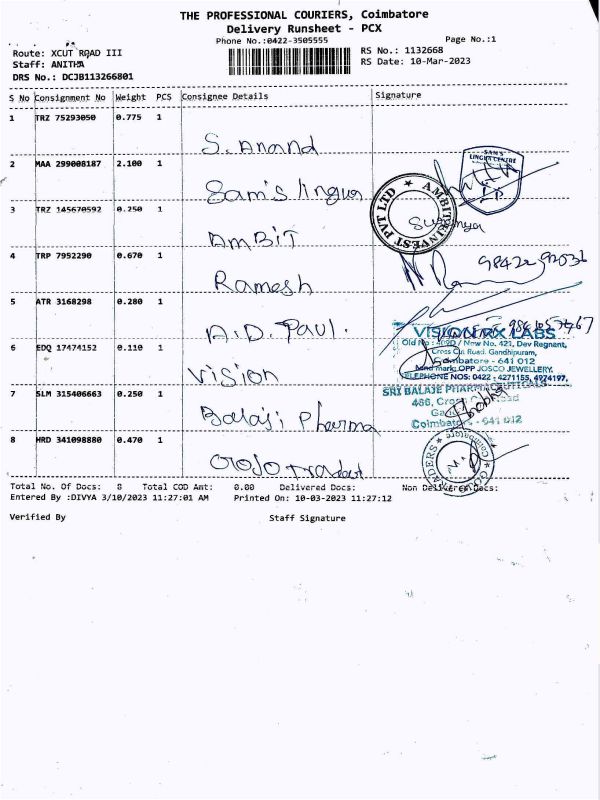 THE PROFESSIONAL COURIERS, Coimbatore
Delivery Runsheet - PCX
Phone No.:0422-3505555
Page No.:1
Route: XCUT ROAD III
RS No.: 1132668
Staff: ANITHA
RS Date: 10-Mar-2023
DRS No.: DCJB113266801
S No Consignment No Weight PCS Consignee Details Signature
1 TRZ 75293050 0.775 1 S. Anand
2 MAA 299008187 2.100 1 Sam's lingua
SAM'S LINGUA CENTRE
3 TRZ 145670592 0.250 1 AMBIT
AMBIT INVEST PVT LTD
4 TRP 7952290 0.670 1 Ramesh
5 ATR 3168298 0.280 1 A.D. Paul.
6 EDQ 17474152 0.110 1 Vision
VISION RX LABS
Old No : 409D / New No. 421, Dev Regnant,
Cross Cut Road, Gandhipuram,
Coimbatore - 641 012
Land mark: OPP JOSCO JEWELLERY.
TELEPHONE NOS: 0422 - 4271155, 4974197.
7 SLM 315406663 0.250 1 Balaji Pharma
SRI BALAJE PHARMACEUTICALS
486, Cross Cut Road
Coimbatore - 641 012
8 HRD 341098880 0.470 1
Total No. Of Docs: 8 Total COD Amt: 0.00 Delivered Docs: Non Delivered Docs:
Entered By :DIVYA 3/10/2023 11:27:01 AM Printed On: 10-03-2023 11:27:12
Verified By Staff Signature